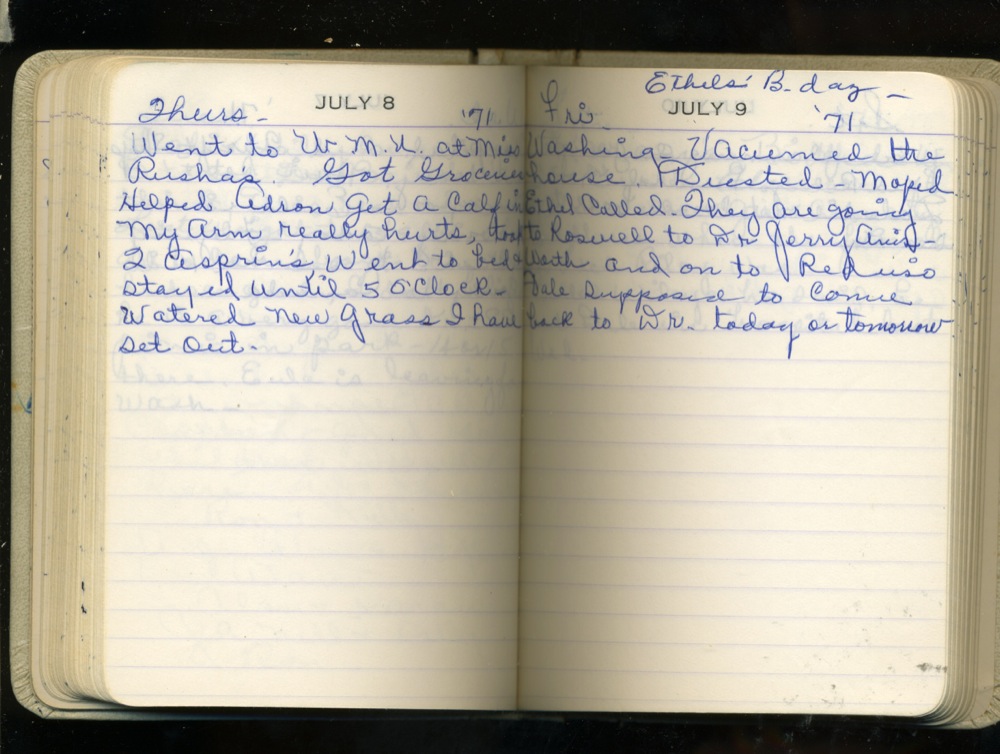 Thurs- JULY 8 '71
Went to W.M.U. at Miss
Rushas. Got Groceries
Helped Adron Get A Calf in
My Arm really hurts, took
2 Asprin's, Went to bed &
stayed until 5 O'Clock-
Watered New Grass I have
set out-
Ethels' B-day-
Fri- JULY 9 '71
Washing- Vacumed the
house. Dusted- Moped
Ethel Called. They are going
to Roswell to Dr Jerry
and on to
Dale supposed to Come
back to Dr. today or tomorrow